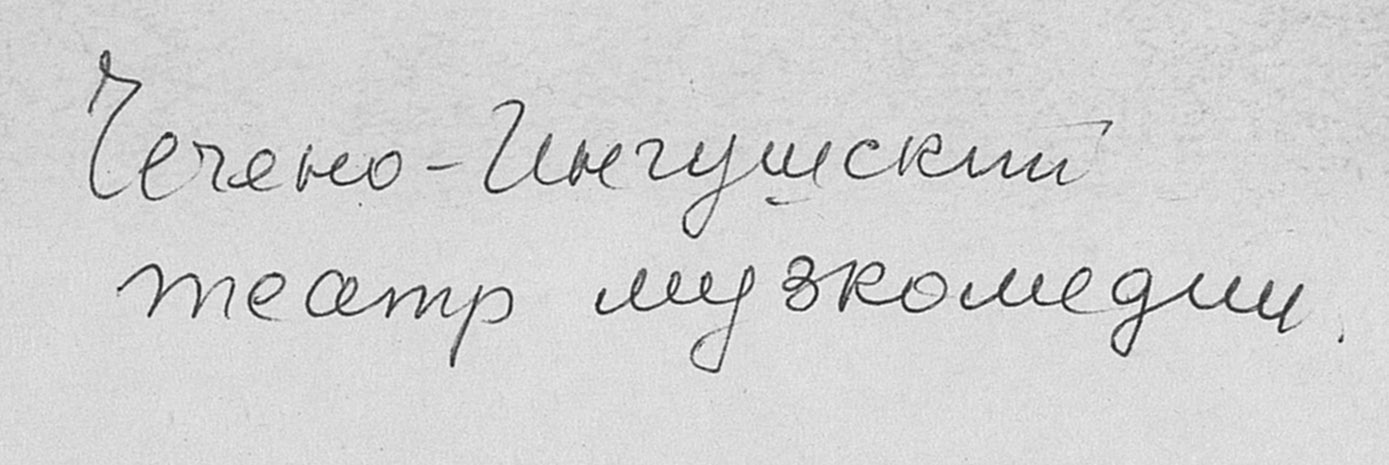 Чечено-Ингушский
театр музкомедии.